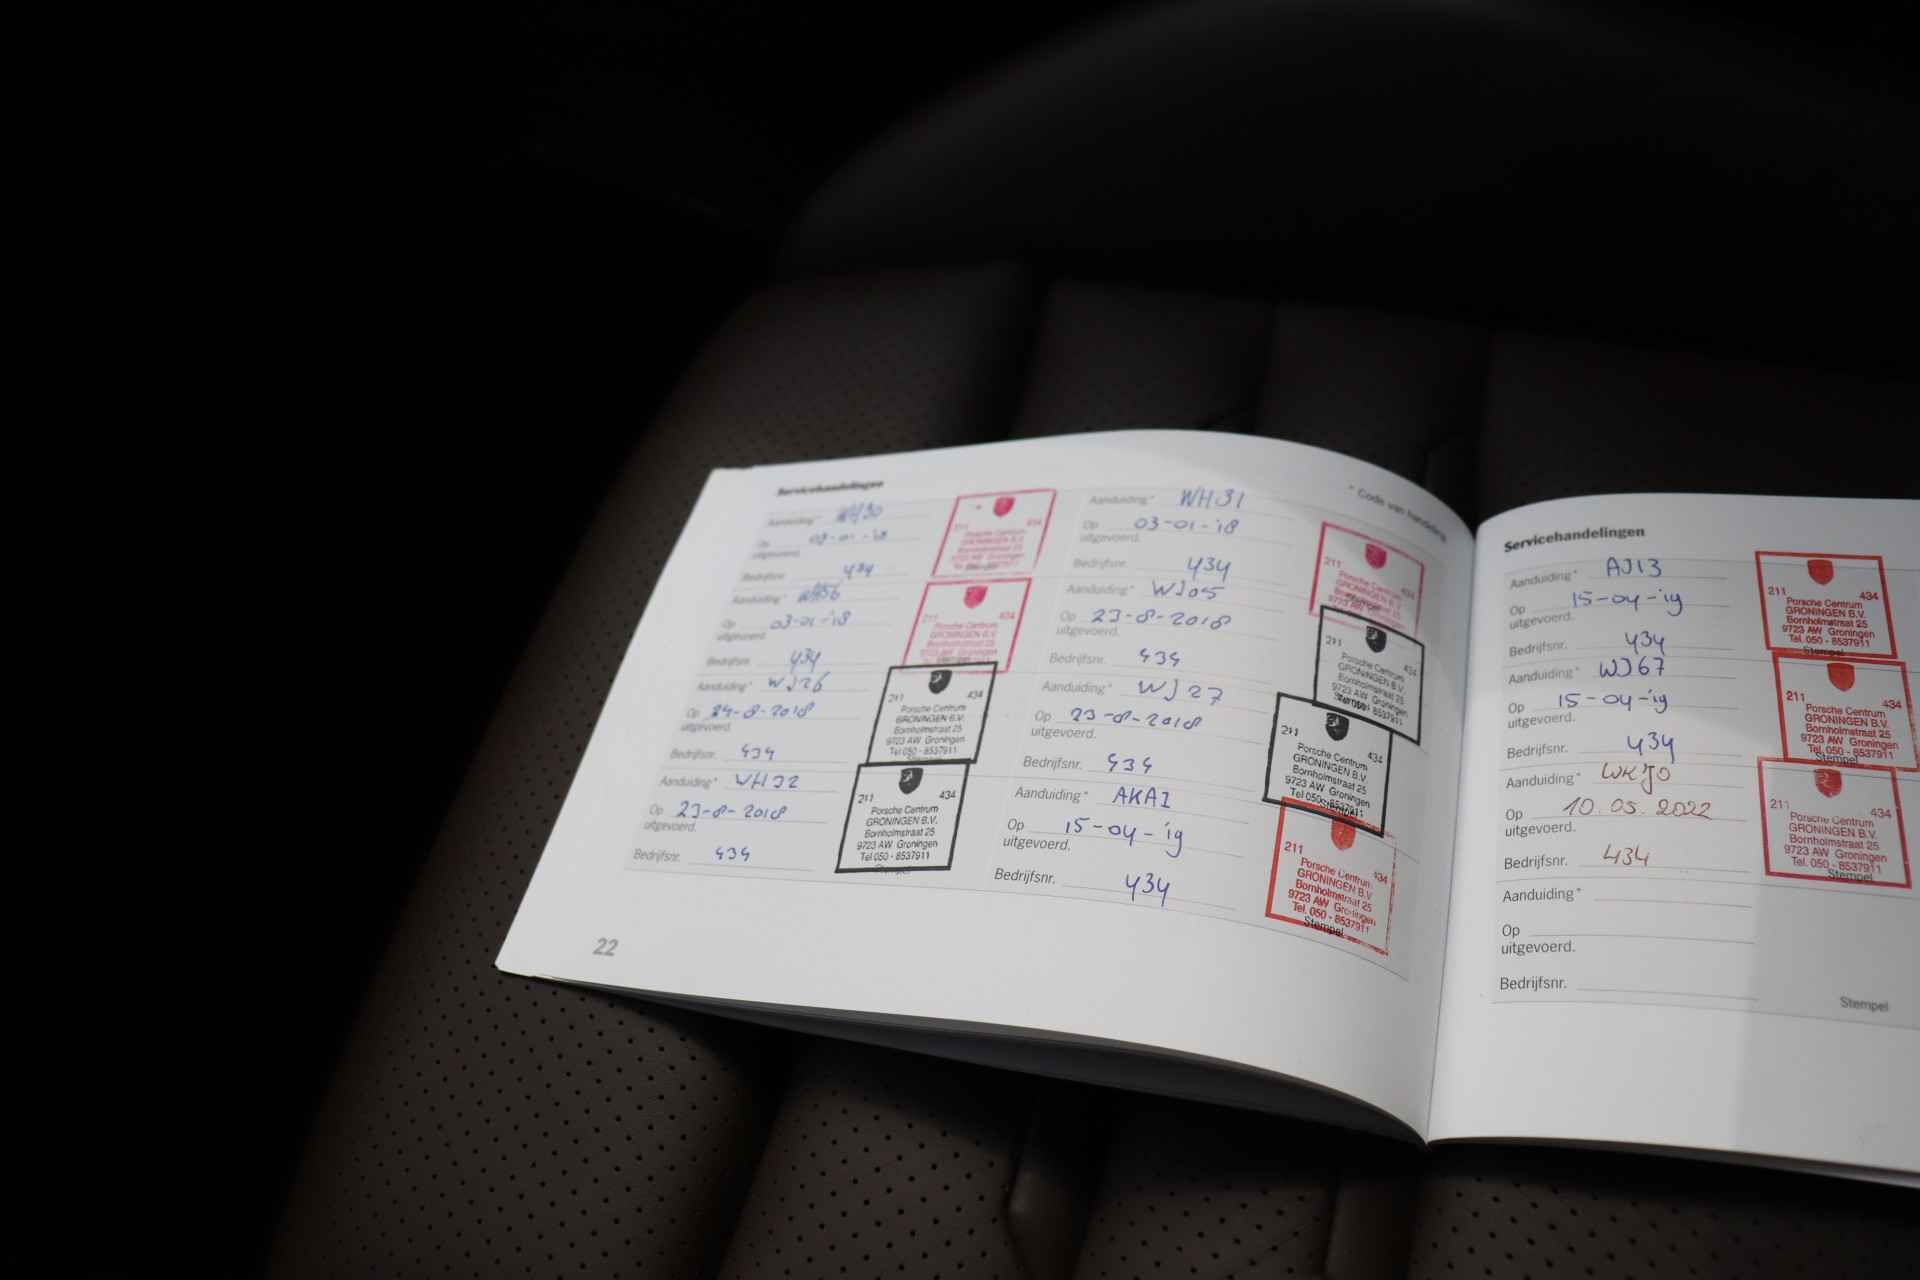 Servicehandelingen
* Code van handeling
Aanduiding* WH30
Op uitgevoerd. 03-01-'18
Bedrijfsnr. 434
211 434
Porsche Centrum
GRONINGEN B.V.
Bornholmstraat 25
9723 AW Groningen
Stempel
Aanduiding* WH56
Op uitgevoerd. 03-01-'18
Bedrijfsnr. 434
211 434
Porsche Centrum
GRONINGEN B.V.
Bornholmstraat 25
9723 AW Groningen
Stempel
Aanduiding* WJ26
Op uitgevoerd. 24-8-2018
Bedrijfsnr. 434
211 434
Porsche Centrum
GRONINGEN B.V.
Bornholmstraat 25
9723 AW Groningen
Tel 050 - 8537911
Aanduiding* WH32
Op uitgevoerd. 23-8-2018
Bedrijfsnr. 434
211 434
Porsche Centrum
GRONINGEN B.V.
Bornholmstraat 25
9723 AW Groningen
Tel 050 - 8537911
Stempel
22
Aanduiding* WH31
Op uitgevoerd. 03-01-'18
Bedrijfsnr. 434
211 434
Porsche Centrum
GRONINGEN B.V.
Bornholmstraat 25
9723 AW Groningen
Aanduiding* WJ05
Op uitgevoerd. 23-8-2018
Bedrijfsnr. 434
211 434
Porsche Centrum
GRONINGEN B.V.
Bornholmstraat 25
9723 AW Groningen
Tel 050 - 8537911
Stempel
Aanduiding* WJ27
Op uitgevoerd. 23-8-2018
Bedrijfsnr. 434
211 434
Porsche Centrum
GRONINGEN B.V.
Bornholmstraat 25
9723 AW Groningen
Tel 050 - 8537911
Stempel
Aanduiding* AKA1
Op uitgevoerd. 15-04-'19
Bedrijfsnr. 434
211 434
Porsche Centrum
GRONINGEN B.V.
Bornholmstraat 25
9723 AW Groningen
Tel. 050 - 8537911
Stempel
Servicehandelingen
Aanduiding* AJ13
Op uitgevoerd. 15-04-'19
Bedrijfsnr. 434
211 434
Porsche Centrum
GRONINGEN B.V.
Bornholmstraat 25
9723 AW Groningen
Tel. 050 - 8537911
Stempel
Aanduiding* WJ67
Op uitgevoerd. 15-04-'19
Bedrijfsnr. 434
211 434
Porsche Centrum
GRONINGEN B.V.
Bornholmstraat 25
9723 AW Groningen
Tel. 050 - 8537911
Stempel
Aanduiding*
Op uitgevoerd. 10.05.2022
Bedrijfsnr. 434
211 434
Porsche Centrum
GRONINGEN B.V.
Bornholmstraat 25
9723 AW Groningen
Tel. 050 - 8537911
Stempel
Aanduiding*
Op uitgevoerd.
Bedrijfsnr.
Stempel